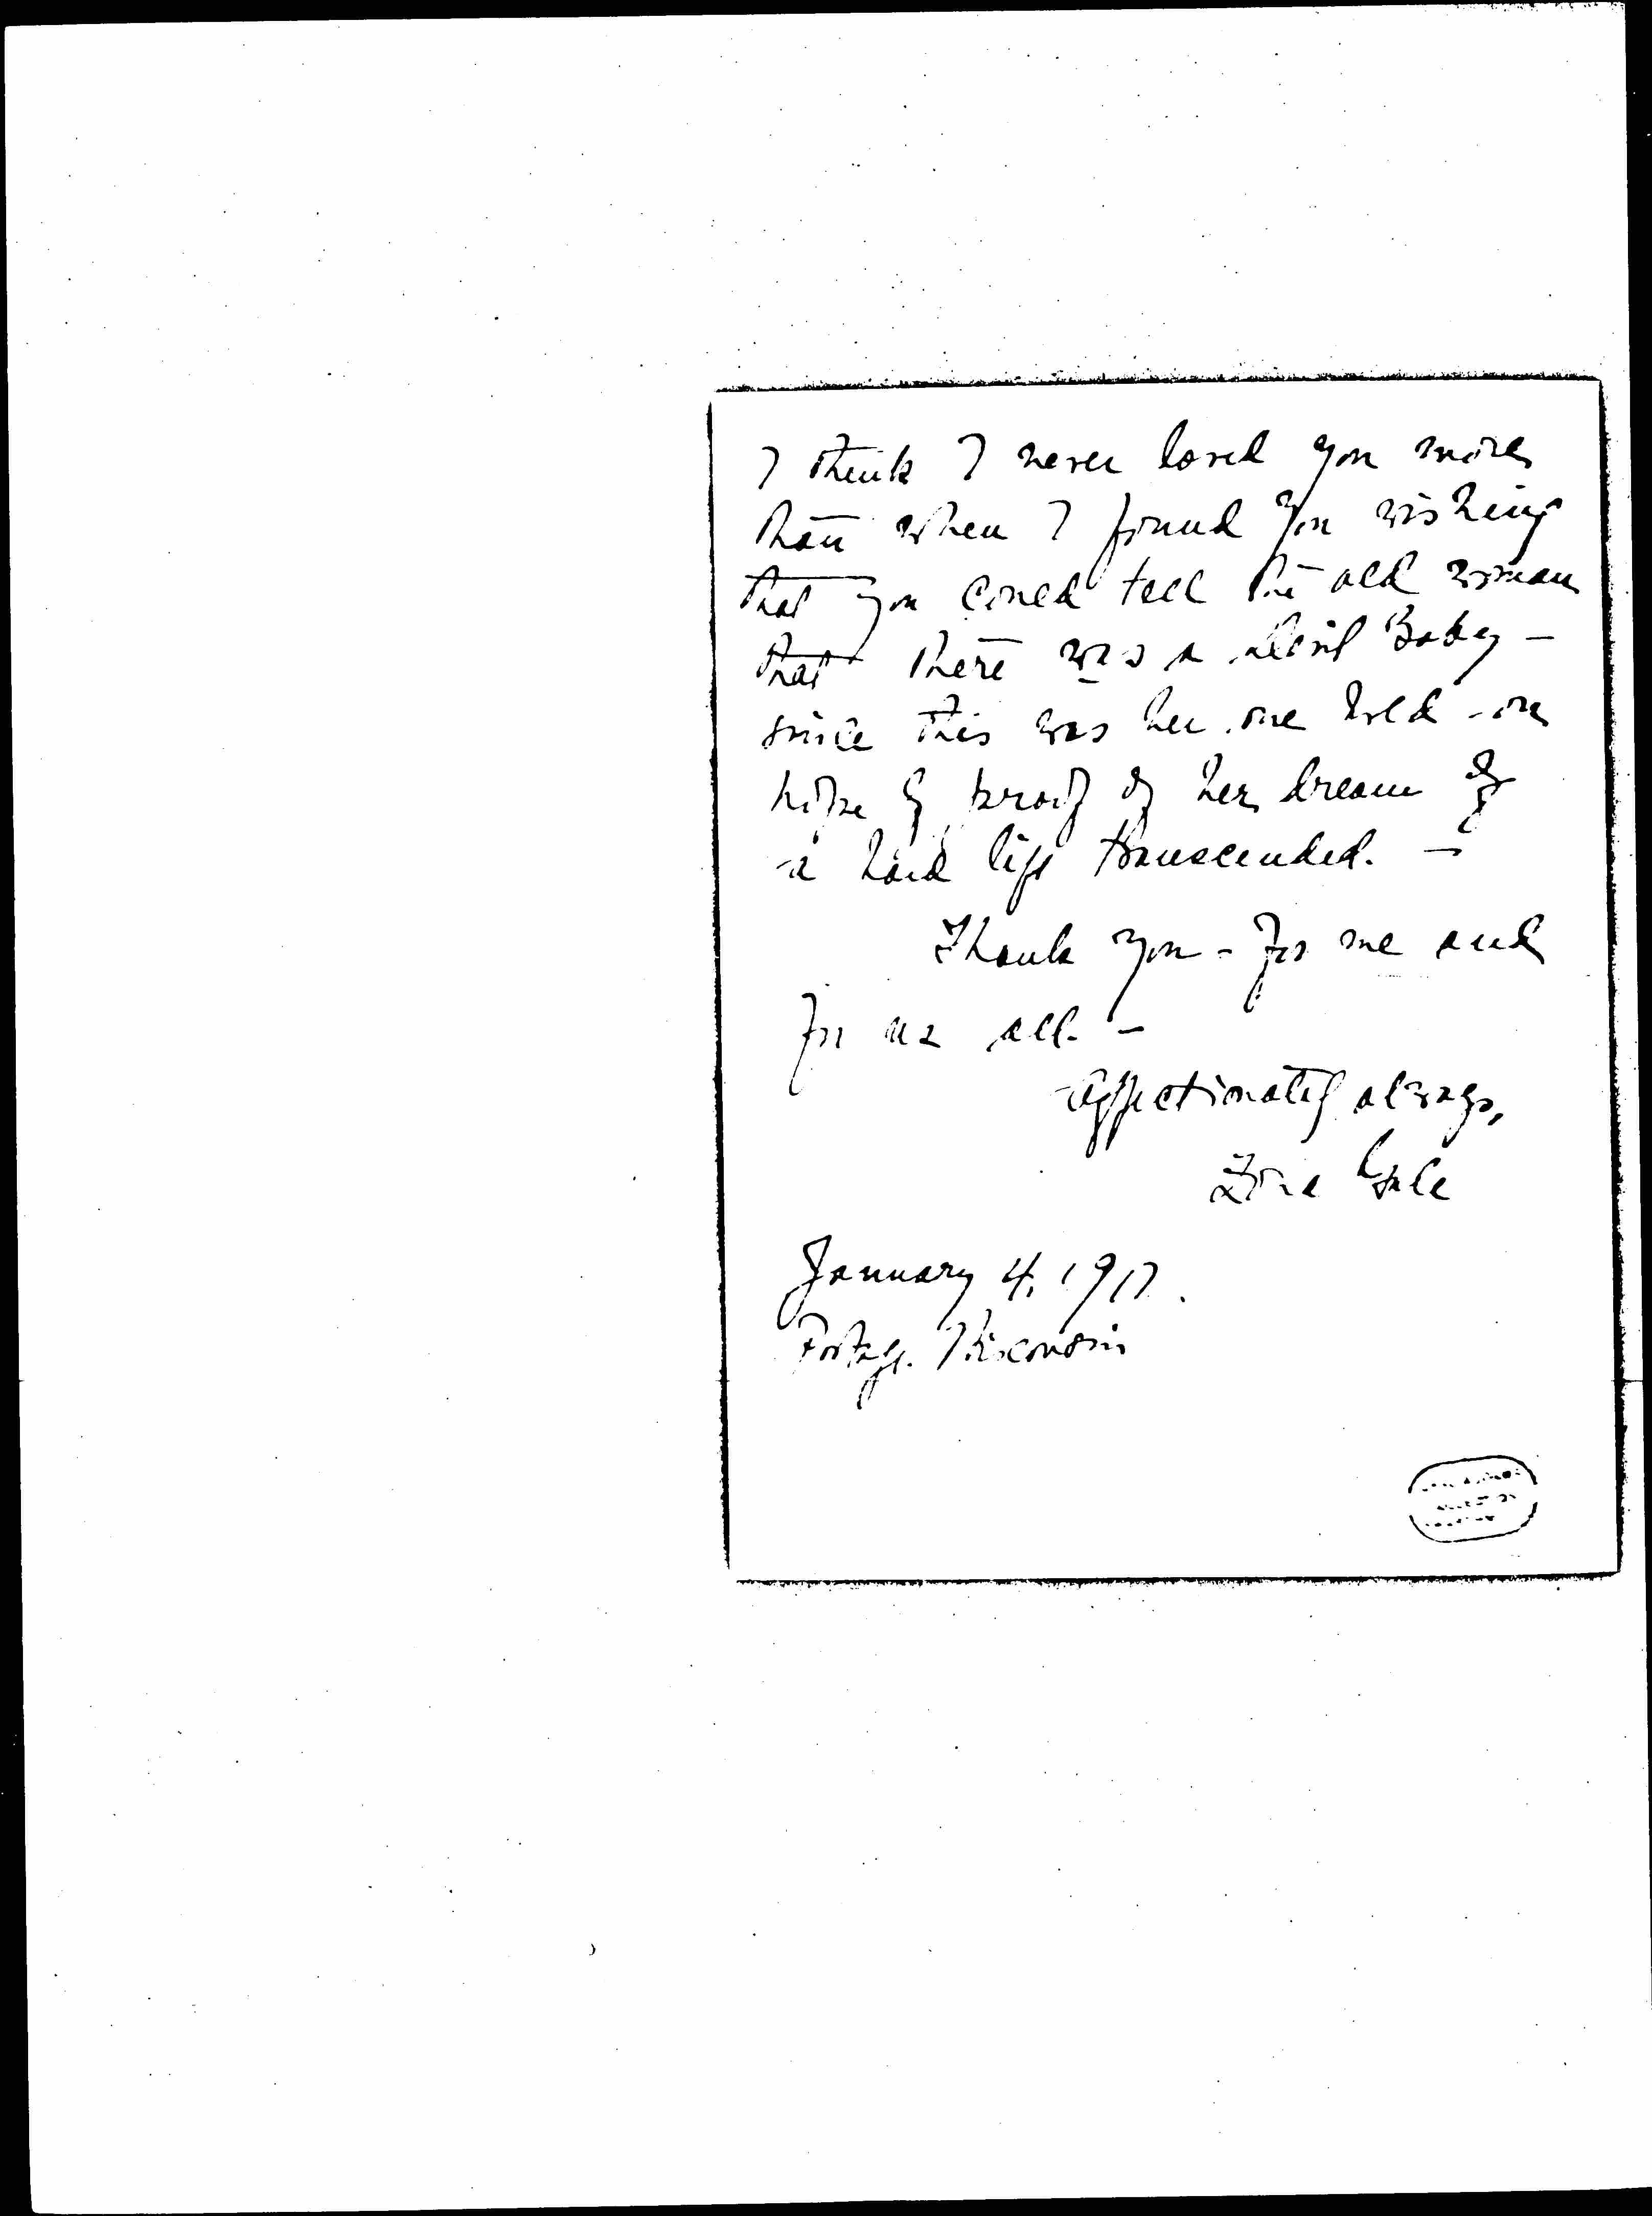 I think I never loved you more
than when I found you wishing
that you could tell the old woman
that there was a devil Baby –
since this was her one hold on
hope & proof of her dream of
a hard life transcended. –
Thank you – for me and
for us all. –
Affectionately always,
Zona Gale
January 4, 1917.
Portage. Wisconsin